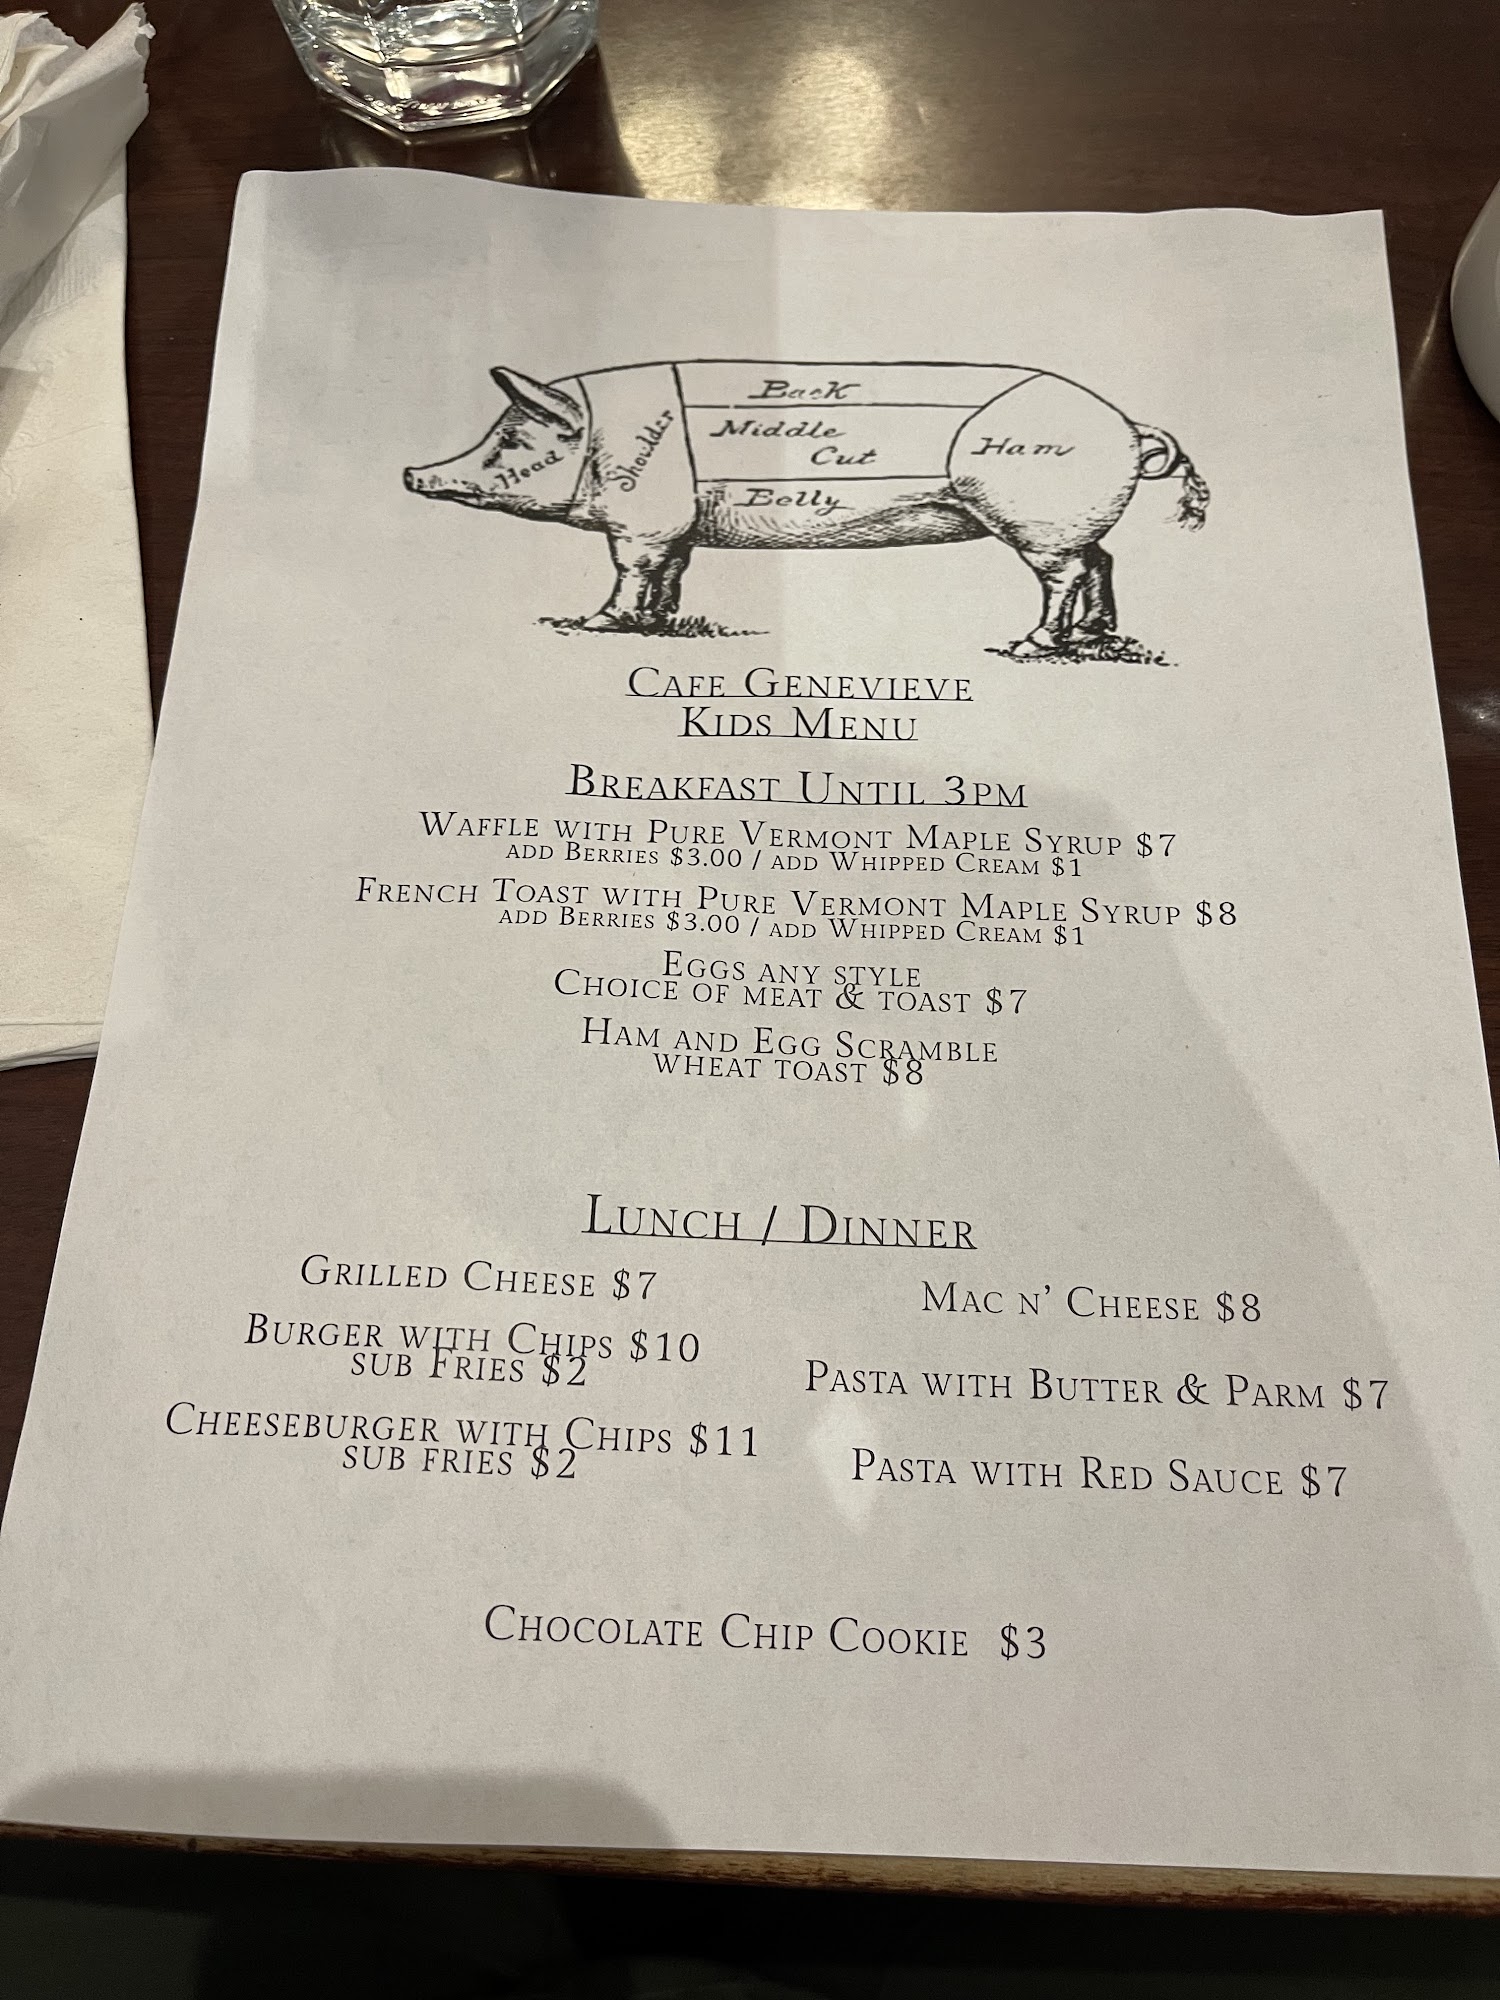 Back
Middle
Cut
Belly
Head
Shoulder
Ham
CAFE GENEVIEVE
KIDS MENU
BREAKFAST UNTIL 3PM
WAFFLE WITH PURE VERMONT MAPLE SYRUP $7
ADD BERRIES $3.00 / ADD WHIPPED CREAM $1
FRENCH TOAST WITH PURE VERMONT MAPLE SYRUP $8
ADD BERRIES $3.00 / ADD WHIPPED CREAM $1
EGGS ANY STYLE
CHOICE OF MEAT & TOAST $7
HAM AND EGG SCRAMBLE
WHEAT TOAST $8
LUNCH / DINNER
GRILLED CHEESE $7
BURGER WITH CHIPS $10
SUB FRIES $2
CHEESEBURGER WITH CHIPS $11
SUB FRIES $2
MAC N' CHEESE $8
PASTA WITH BUTTER & PARM $7
PASTA WITH RED SAUCE $7
CHOCOLATE CHIP COOKIE $3